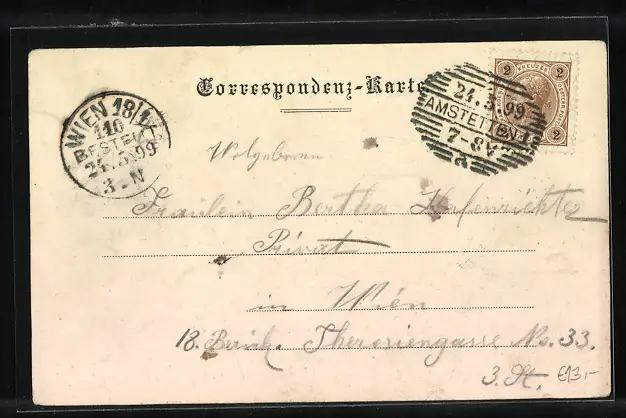 Correspondenz-Karte
2 KREUZER 2
2 2
24.5.99
AMSTETTEN
7-8V
WIEN 18/1
110
BESTELLT
24.5.99
3-N
Wolgeboren
Fräulein Bertha Hafenrichter
Privat
in Wien
18. Bezirk. Theresiengasse No. 33.
3. St. €13,-